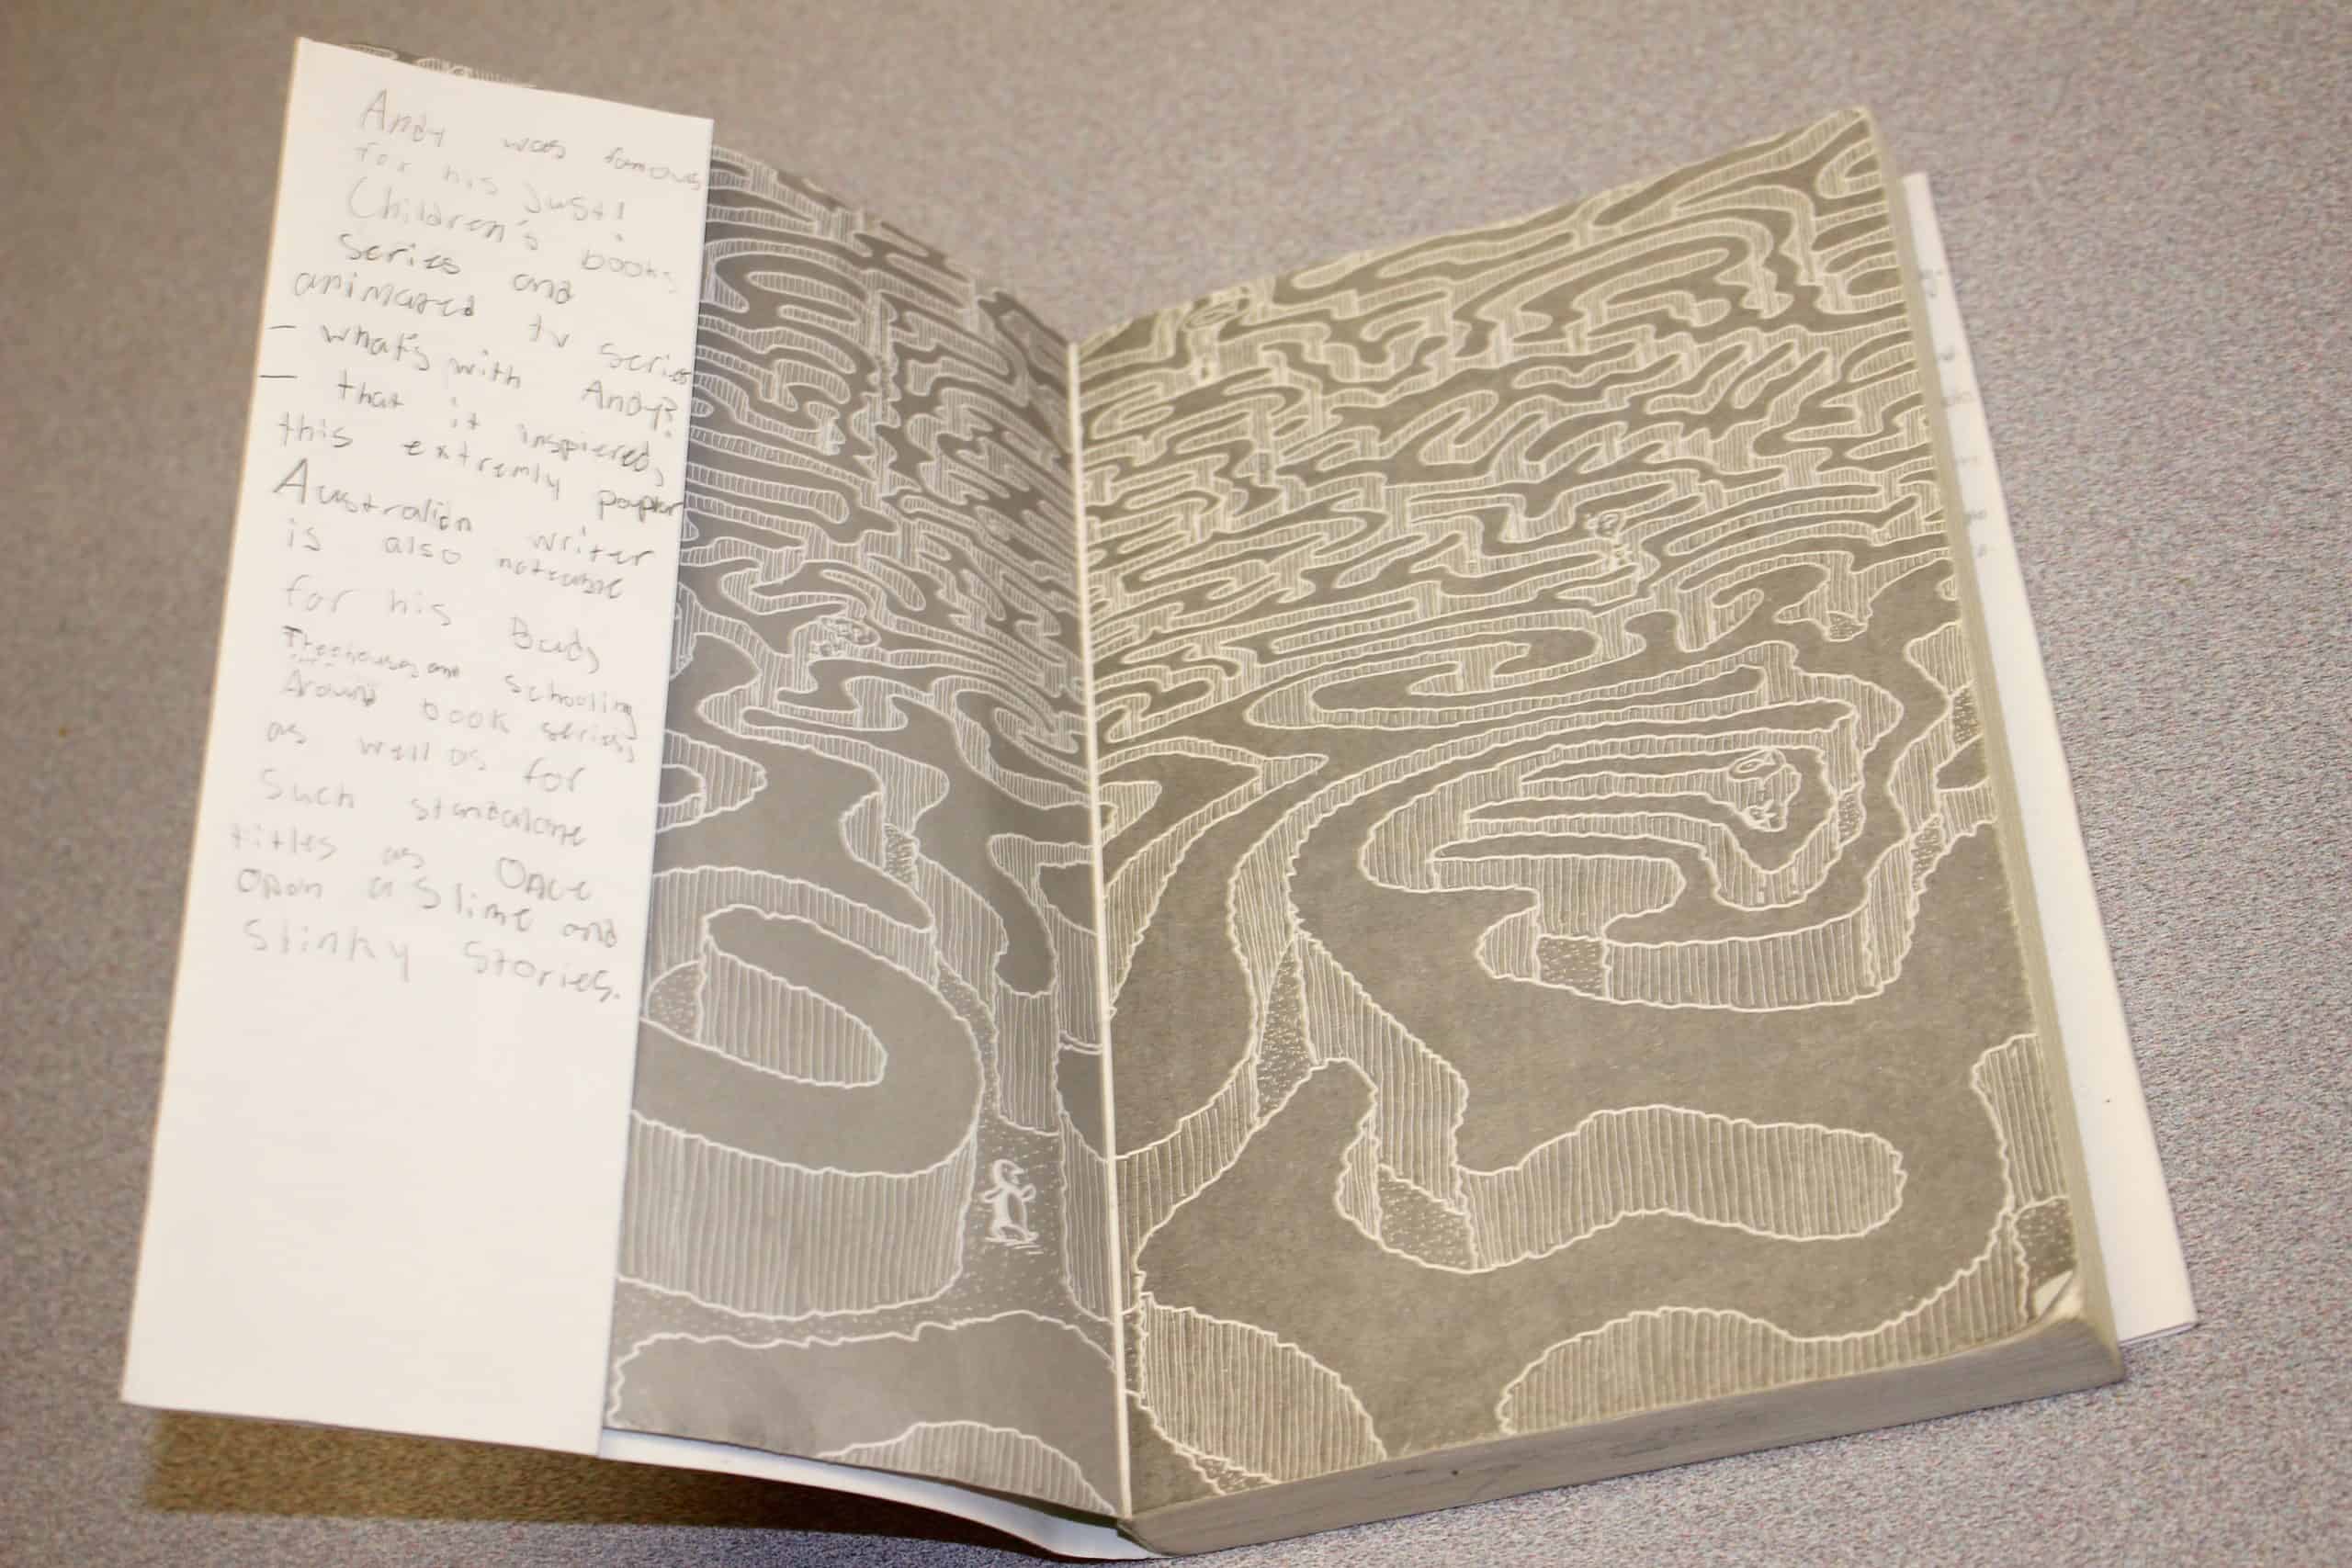 Andy was famous
for his Just!
Children's books
series and
animated tv series
— what's with Andy?
— that it inspiered,
this extremly poplar
Australian writer
is also noteable
for his Bad,
Treehouse, and schooling
Around book series,
as well as for
Such standalone
titles as Once
Opon a Slime and
Stinky Stories.